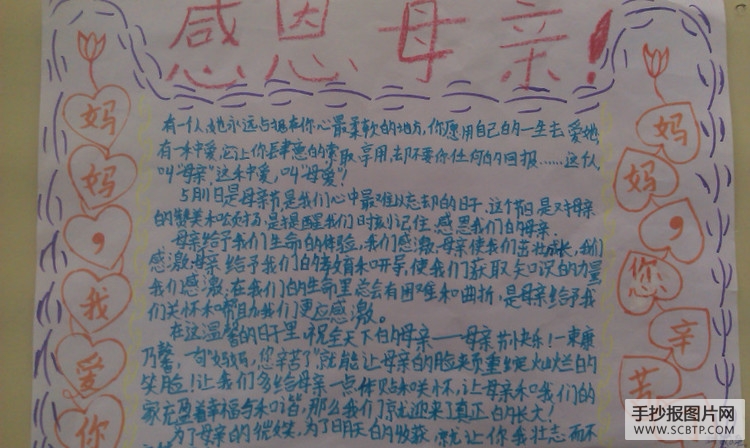 感恩母亲!
妈
妈
,
我
爱
你
有一个人,她永远占据在你心最柔软的地方,你愿用自己的一生去爱她
有一种爱,它让你肆意的索取、享用,却不要你任何的回报……这个人
叫"母亲"这种爱,叫"母爱"?
5月11日是母亲节是我们心中最难以忘却的日子,这个节日是对母亲
的赞美和颂扬,是提醒我们时刻记住,感恩我们的母亲.
母亲给了我们生命的体验,我们感激,母亲使我们茁壮成长,我们
感激,母亲给予我们的教育和开导,使我们获取知识的力量
我们感激,在我们的生命里总会有困难和曲折,是母亲给予我
们关怀和帮助我们更应感激。
在这温馨的日子里,祝全天下的母亲——母亲节快乐!一束康
乃馨,一句"妈妈,您辛苦了"就能让母亲的脸来页重绽灿烂的
笑脸!让我们多给母亲一点体贴和关怀,让母亲和我们的
家充盈着幸福与和谐,那么我们就迎来了真正的长大!
为了母亲的微笑,为了明天的收获,就让你我壮志而不
妈
妈
,
您
辛
苦
手抄报图片网
WWW.SCBTP.COM